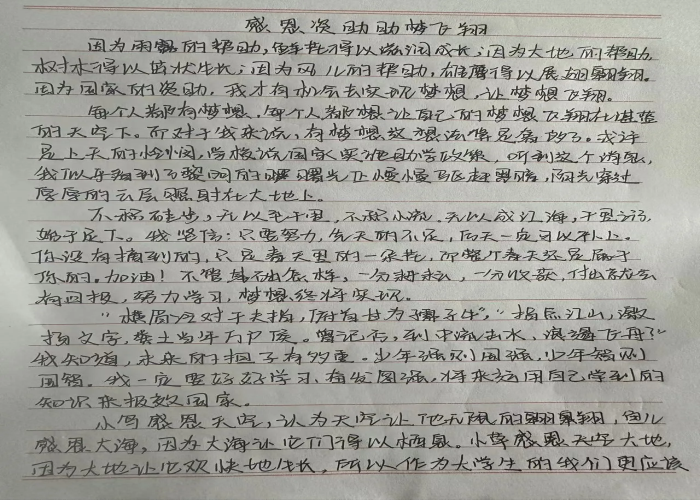 感恩资助助梦飞翔
因为雨露的帮助,鲜花得以滋润成长;因为大地的帮助
树木得以茁状生长;因为风儿的帮助,雄鹰得以展翅翱翔。
因为国家的资助,我才有机会去实现梦想,让梦想飞翔。
每个人都有梦想,每个人都想让自己的梦想飞翔在湛蓝
的天空下。而对于我来说,有梦想敢想就像是奢侈了。或许
是上天的怜悯,学校说国家实施助学政策,听到这个消息,
我似乎看到了黎明的曙光正慢慢飞赶黑暗,阳光穿过
厚厚的云层照射在大地上。
不积硅步,无以至千里,不积小流,无以成江海,千里之行,
始于足下。我坚信:只要努力,先天的不足,后天一定可以补上。
你没有摘到的,只是春天里的一朵花,而整个春天还是属于
你的。加油!不管基础怎样,一分耕耘,一分收获,付出就会
有回报,努力学习,梦想终将实现。
"横眉冷对千夫指,俯首甘为孺子牛","指点江山,激
扬文字,粪土当年万户侯。曾记否,到中流击水,浪遏飞舟?"
我知道,未来的担子有多重。少年强则国强,少年智则
国智。我一定要好好学习,有发图强,将来运用自己学到的
知识来报效国家。
小鸟感恩天空,认为天空让他无限的翱翔,鱼儿
感恩大海,因为大海让它们得以栖息。小草感恩天空大地,
因为大地让它欢快地生长,所以作为大学生的我们更应该